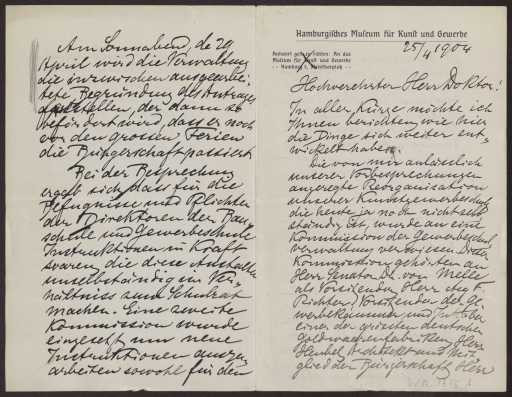 Hamburgisches Museum für Kunst und Gewerbe
Antwort gefl. zu richten: An das
Museum für Kunst und Gewerbe
Hamburg 5, Steintorplatz
25/4 1904
Hochverehrter Herr Doktor!
In aller Kürze möchte ich
Ihnen berichten, wie hier
die Dinge sich weiter ent-
wickelt haben.
Die von mir anlässlich
unserer Vorbesprechungen
angeregte Reorganisation
unserer Kunstgewerbeschule,
die heute ja noch nicht selb-
ständig ist, wurde an eine
Kommission der Gewerbeschul-
verwaltung verwiesen. Dieser
Kommission gehörten an
Herr Senator Dr. von Melle
als Vorsitzender, Herr Aug. F.
Richter, Vorsitzender der Ge-
werbekammer und Inhaber
einer der grössten deutschen
Goldwarenfabriken, Herr
Henkel, Architekt und Mit-
glied der Bürgerschaft, Herr
Am Sonnabend, de 29
April wird die Verwaltung
die inzwischen ausgearbei-
tete Begründung des Antrages
feststellen, der dann so
befördert wird, dass er noch
vor den grossen Ferien
die Bürgerschaft passiert.
Bei der Besprechung
ergab sich, dass für die
Befugnisse und Pflichten
der Direktoren der Bau-
schule und Gewerbeschule
Instruktionen in Kraft
waren, die diese Anstalten
unselbständig im Ver-
hältniss zum Schulrat
machen. Eine zweite
Kommission wurde
eingesetzt um neue
Instruktionen auszu-
arbeiten sowohl für den